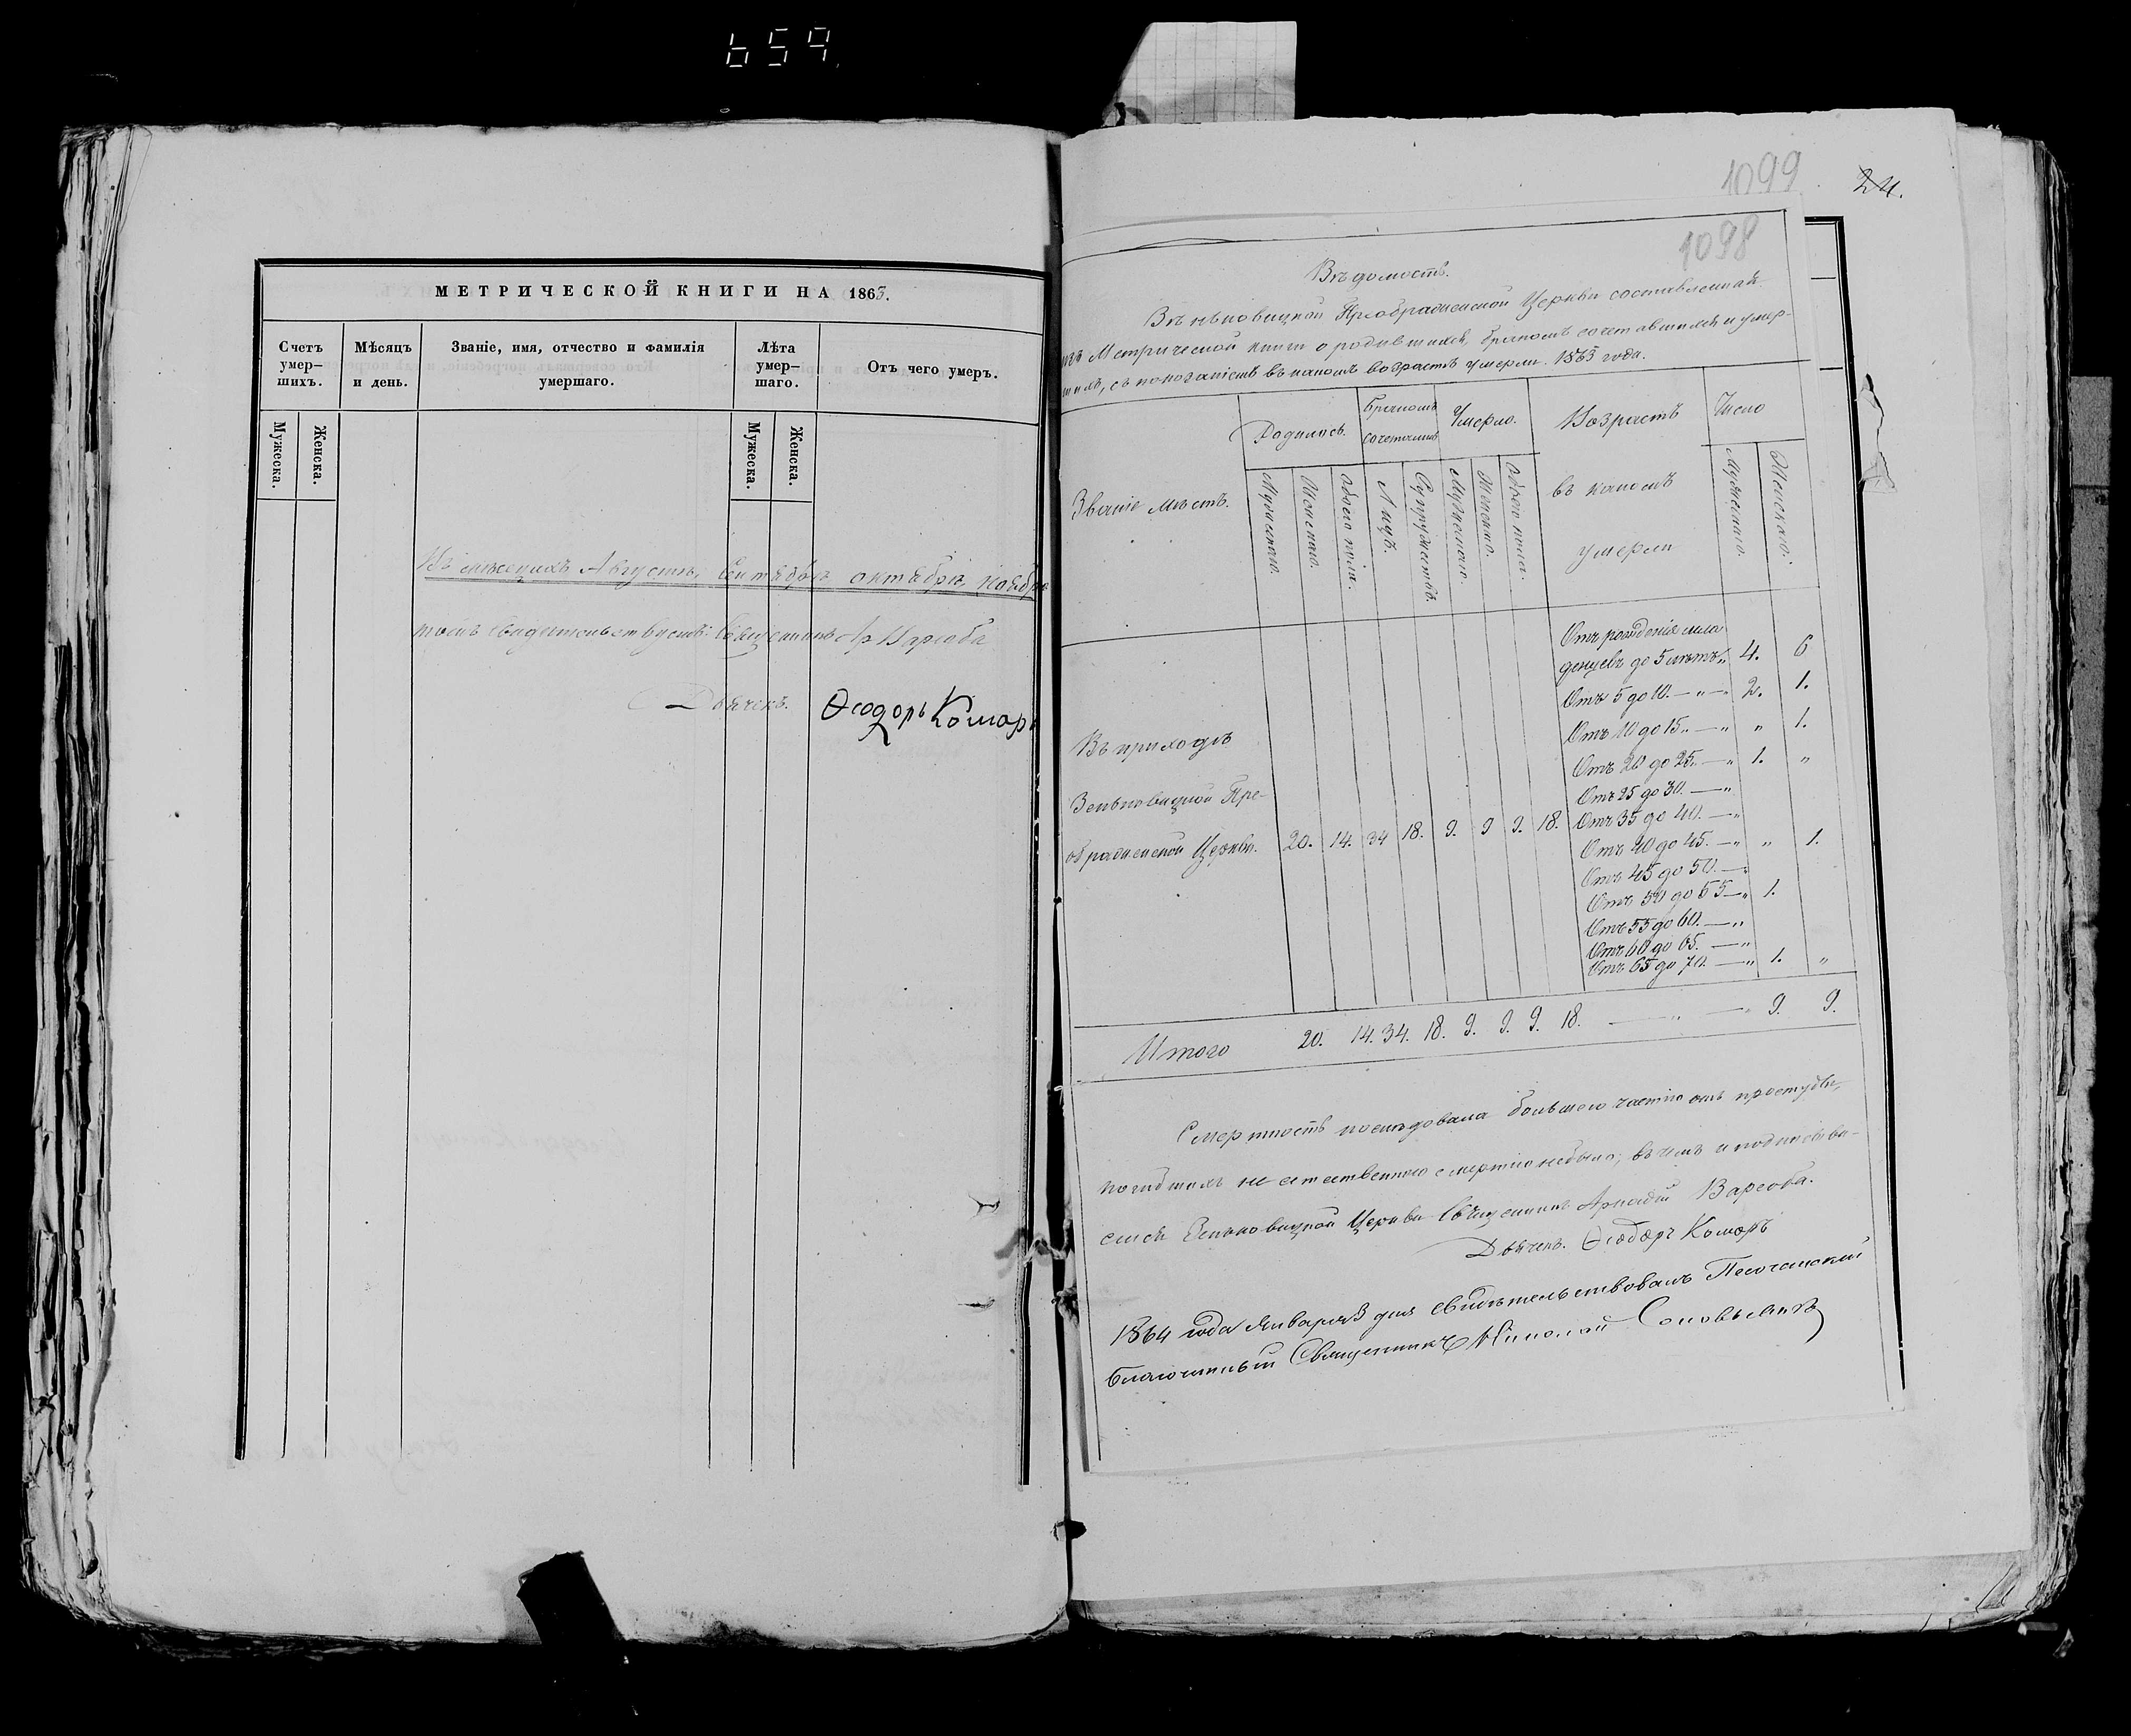 659
МЕТРИЧЕСКОЙ КНИГИ НА 1863.
Счетъ умер-шихъ.
Мѣсяцъ и день.
Званіе, имя, отчество и фамилія умершаго.
Лѣта умер-шаго.
Отъ чего умеръ.
Мужеска.
Женска.
Мужеска.
Женска.
Въ мѣсяцахъ Августѣ, Сентябрѣ октябрѣ, Ноябрѣ
свидетельствуемъ: Священникъ Ар Варсоба
Дьячекъ. Ѳеодоръ Комаръ
1099
24.
1098
Вѣдомость.
Преображенской Церкви составленная
изъ Метрической книги о родившихся, бракомъ сочетавшихся и умер-
шихъ, съ показаніемъ въ какомъ возрастѣ умерли. 1863 года.
Званіе мѣстъ.
Родилось.
Бракомъ сочетались
Умерло.
Возрастъ
въ какомъ
умерли
Число
Мужескаго.
Женскаго.
Обоего пола.
Лицъ.
Супружествъ.
Мужескаго.
Женскаго.
Обоего пола.
Мужескаго.
Женскаго.
Отъ рожденія мла
денцевъ до 5 лѣтъ „ 4. 6
Отъ 5 до 10. — „ — 2. 1.
Отъ 10 до 15 „ — „ „ 1.
Отъ 20 до 25. — „ 1. „
Отъ 25 до 30. — „
Отъ 35 до 40. — „
Отъ 40 до 45. — „ „ 1.
Отъ 45 до 50. — „
Отъ 50 до 55 — „ 1.
Отъ 55 до 60. — „
Отъ 60 до 65. — „
Отъ 65 до 70. — „ 1. „
Въ приходѣ
Зельковицкой Пре-
ображенской Церкви. 20. 14. 34 18. 9. 9 9. 18.
Итого 20. 14. 34. 18. 9. 9. 9. 18. — „ — „ 9. 9.
Смертность послѣдовала большею частію отъ простуды,
погибшихъ не естественною смертію небыло; въ чемъ и подписыва-
емся Зельковицкой Церкви Священникъ Аркадій Варсоба.
Дьячекъ. Ѳеодоръ Комаръ
1864 года Января 3 дня свидѣтельствовалъ Песочанскій
Благочинный Священникъ Николай Соловьевичъ